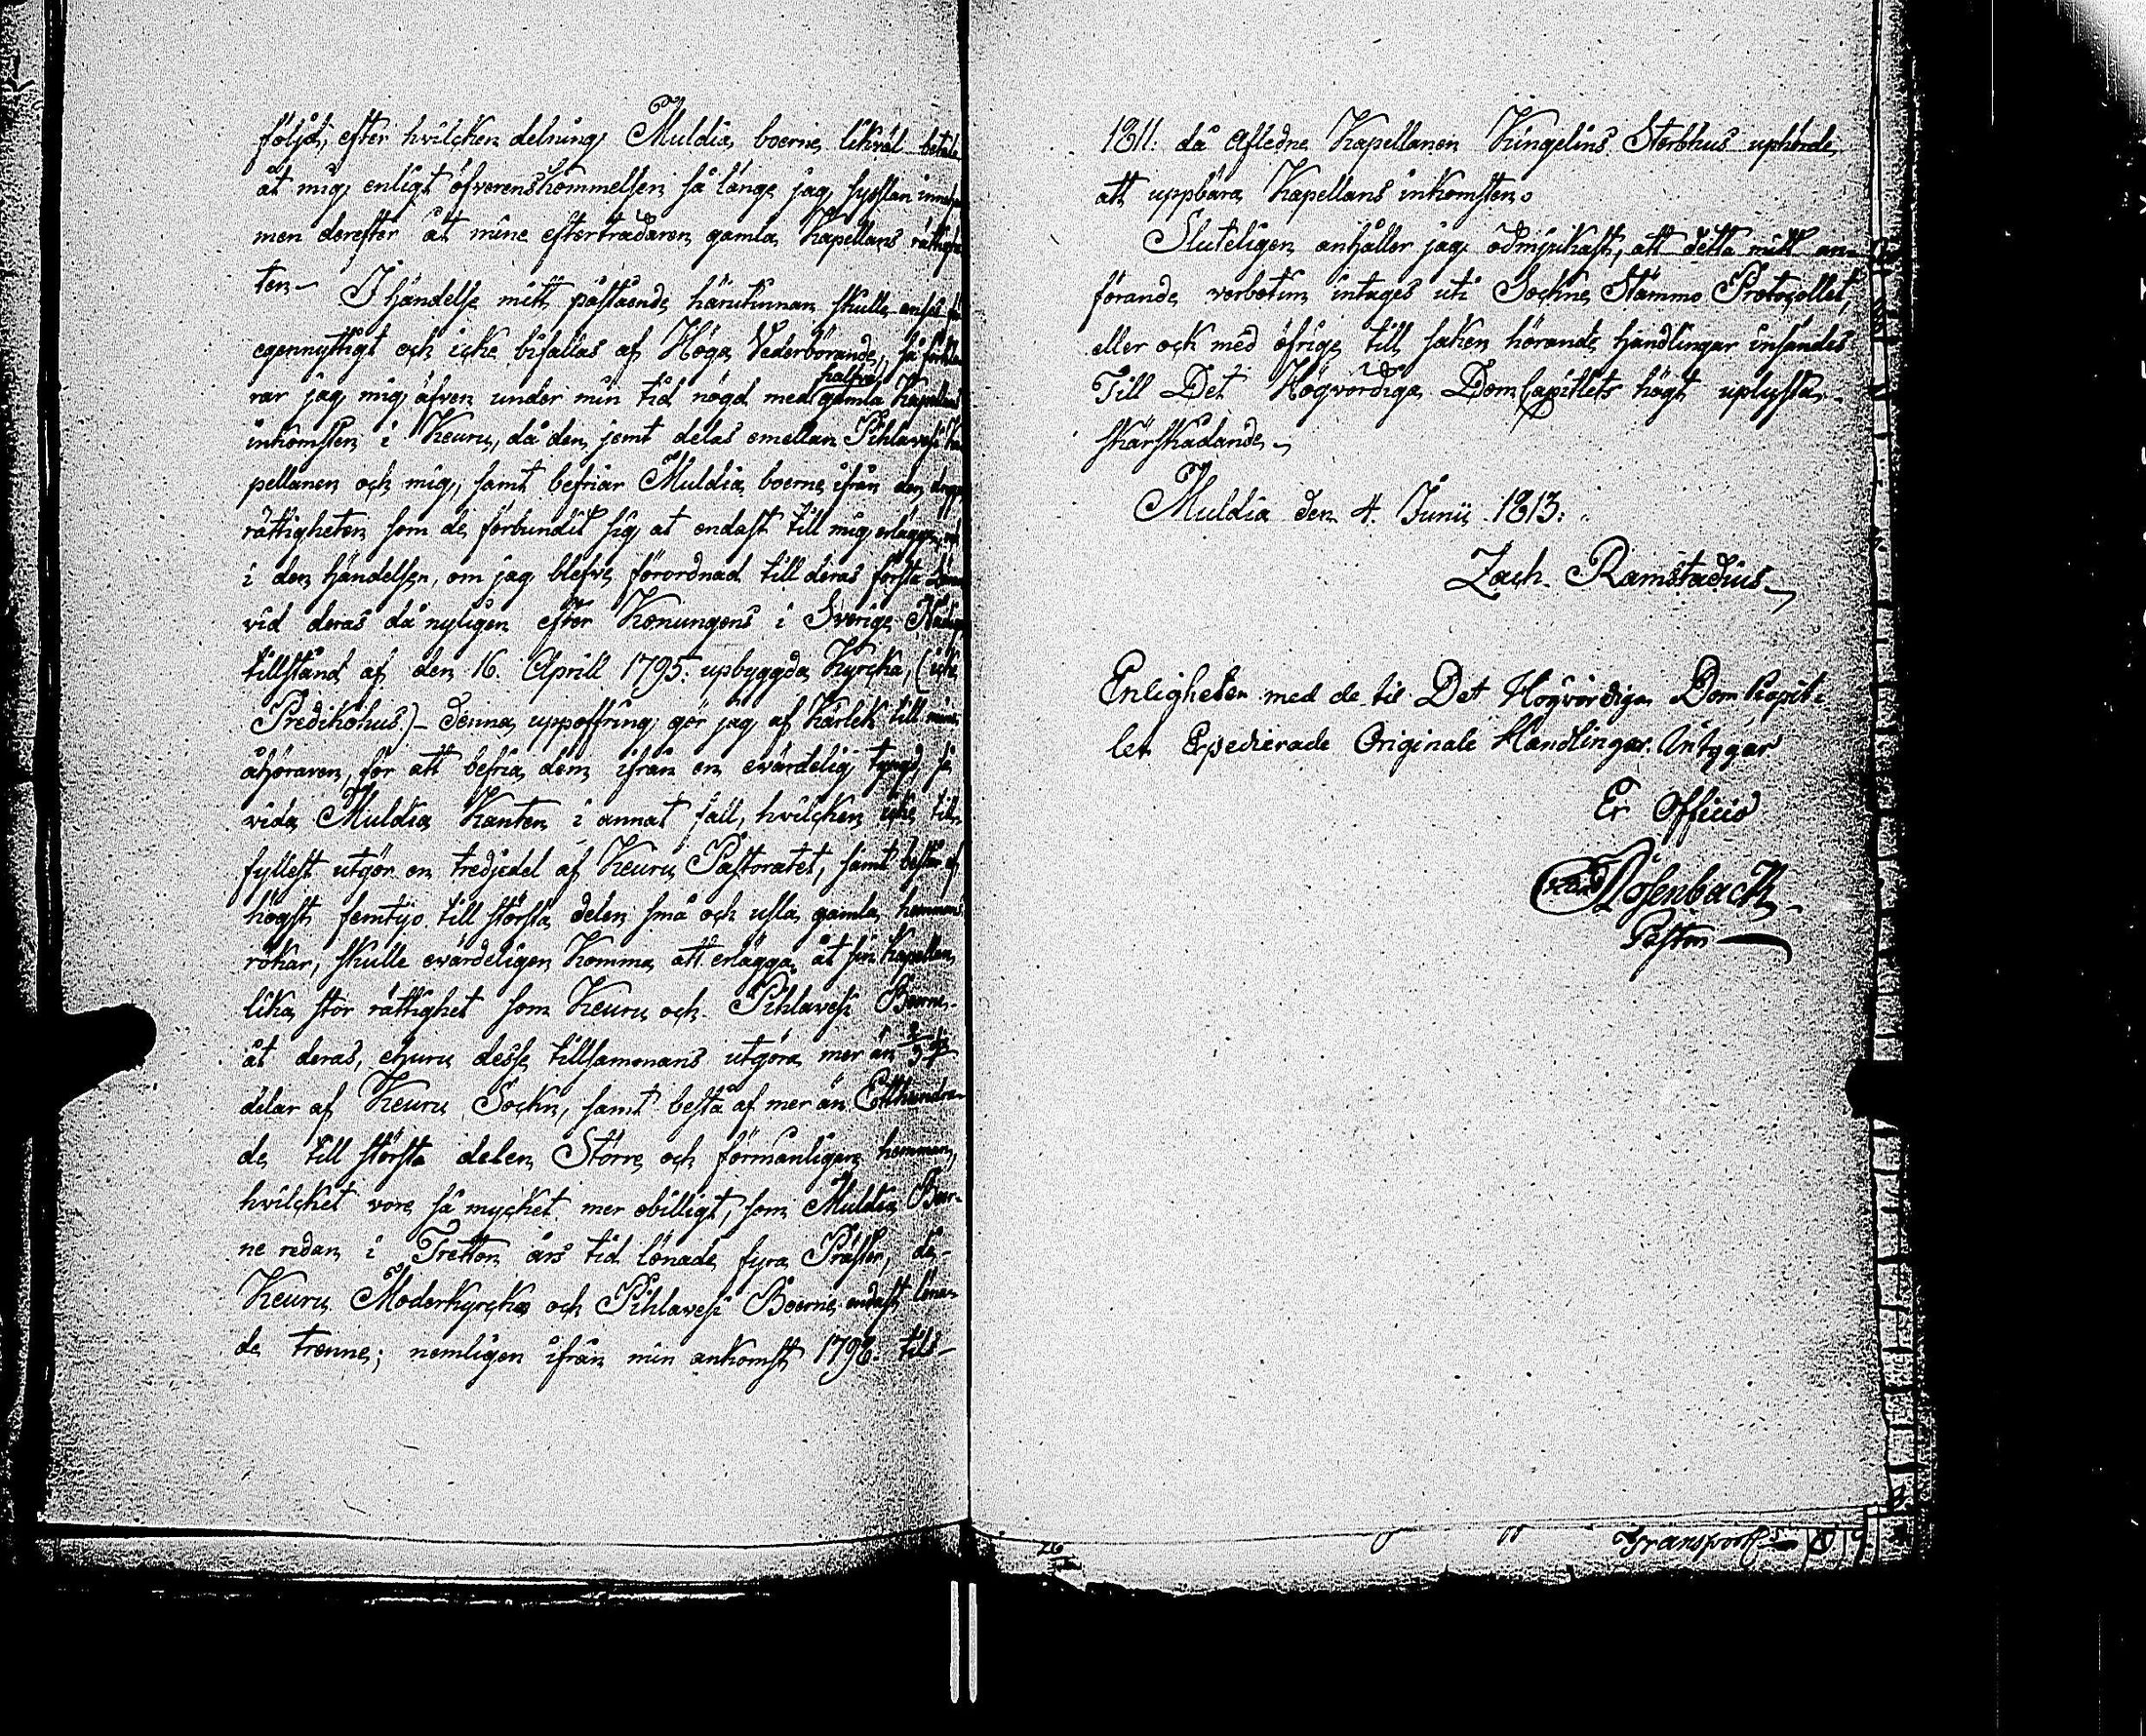 följd, efter hvilcken delning Muldia boerne likväl betala
åt mig, enligt öfverenskommelsen så länge jag sysslan inneha
men derefter åt mine efterträdaren gamla Kapellans rättighe
ten — I händelse mitt påstående härutinnan skulle anses
egennyttigt och icke bifallas af Höga Vederbörande, så förkla
rar jag mig äfven under min tid nögd med halfva gamla Kapellans
inkomsten i Keuru, då den jemt delas emellan Pihlavesi Ka
pellanen och mig, samt befriar Muldia boerne ifrån den
rättigheten som de förbundit sig at endast till mig erlägga,
i den händelsen, om jag blefve förordnad till deras första
vid deras då nyligen efter Konungens i Sverige Nådiga
tillstånd af den 16. Aprill 1795. upbyggda Kyrcka, (icke
Predikohus.) — Denna uppoffring gör jag af Kärlek till mine
åhöraren, för att befria dem ifrån en evärdelig tyngd, så
vida Muldia Kanten i annat fall, hvilcken icke till
fyllest utgör en tredjedel af Keuru Pastoratet, samt består af
högst femtijo till största delen små och usla gamla hemmans
rökar, skulle evärdeligen Komma att erlägga åt sin Kapellan
lika stor rättighet som Keuru och Pihlavesi Boerne
åt deras, ehuru desse tillsammans utgöra mer än 2/3
delar af Keuru Sockn, samt bestå af mer än Etthundra-
de till största delen Större och förmånligare hemman,
hvilcket vore så mycket mer obilligt, som Muldia Boer-
ne redan i Tretton års tid lönade fyra Präster, då
Keuru Moderkyrcko och Pihlavesi Boerne endast löna-
de trenne; nemligen ifrån min ankomst 1798. tils
1811. då Afledne Kapellanen Kingelins Sterbhus uphörde
att uppbära Kapellans inkomsten.
Sluteligen anhåller jag ödmjukast, att detta mitt an-
förande verbotim intages uti Sockne Stämmo Protocollet,
eller ock med öfrige till saken hörande handlingar insändes
Till Det Högvördiga DomCapitlets högt uplysta
skärskådande —
Muldia den 4. Junii 1813.
Zach. Ramstadius
Enligheten med de til Det Högvördiga Dom Capit-
let Expedierade Originale Handlingar. Intygar
Ex Officio
Rosenback
Pastor
Transport